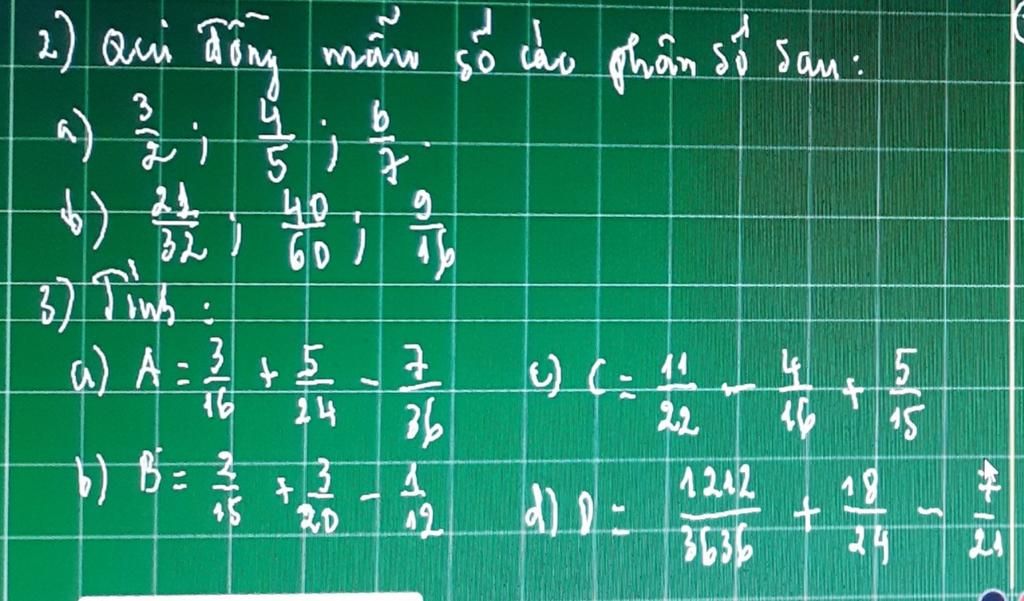 2) Qui đồng mẫu số các phân số sau:
a) 3/2 ; 4/5 ; 6/7.
b) 21/32 ; 40/60 ; 9/16
3) Tính :
a) A = 3/16 + 5/24 - 7/36
c) C = 11/22 - 4/16 + 5/15
b) B = 2/15 + 3/20 - 1/12
d) D = 1212/3636 + 18/24 - 7/21